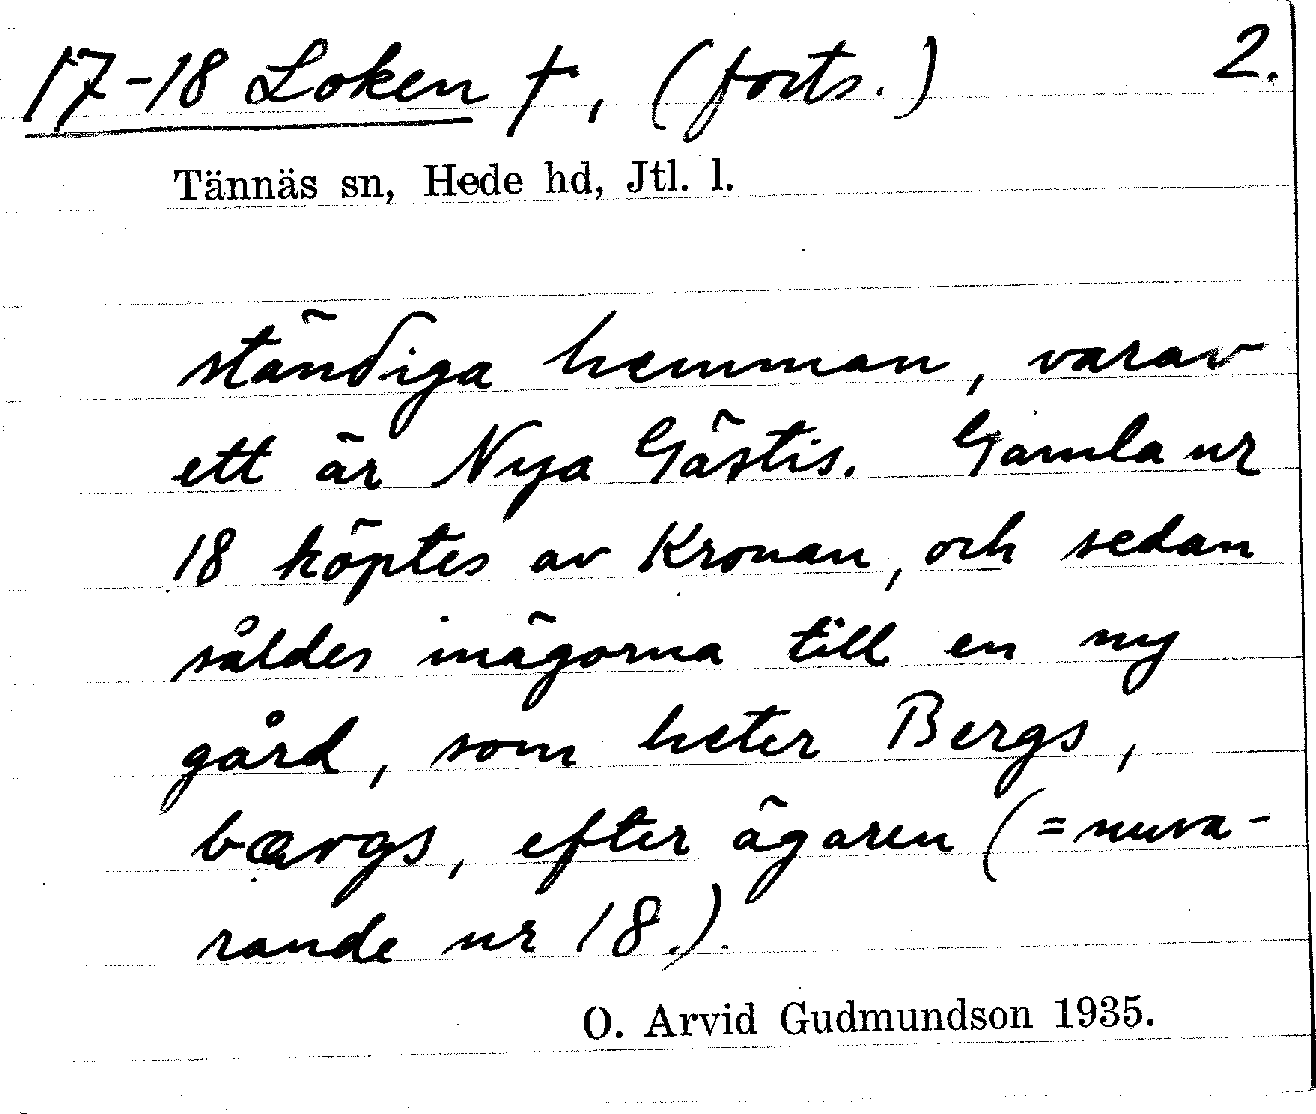 17-18 Loken †, (forts.) 2.
Tännäs sn, Hede hd, Jtl. l.
ständiga hemman, varav
ett är Nya Gästis. Gamla nr
18 köptes av Kronan, och sedan
såldes inägorna till en ny
gård, som heter Bergs,
bærgs, efter ägaren (=nuva-
rande nr 18.).
O. Arvid Gudmundson 1935.